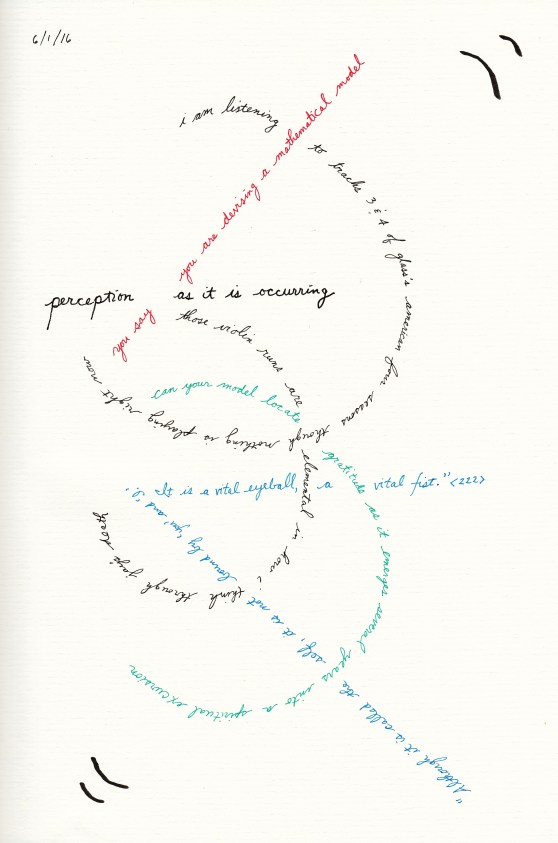 6/1/16
i am listening to tracks 3 & 4 of glass's american four seasons though nothing is playing right now
you say you are devising a mathematical model
perception as it is occurring
those violin runs are elemental in how i think through
can your model locate gratitude as it emerges several years into a spiritual excursion
"Although it is called the self, it is not bound by 'you' and 'i.'
It is a vital eyeball, a vital fist." <222>